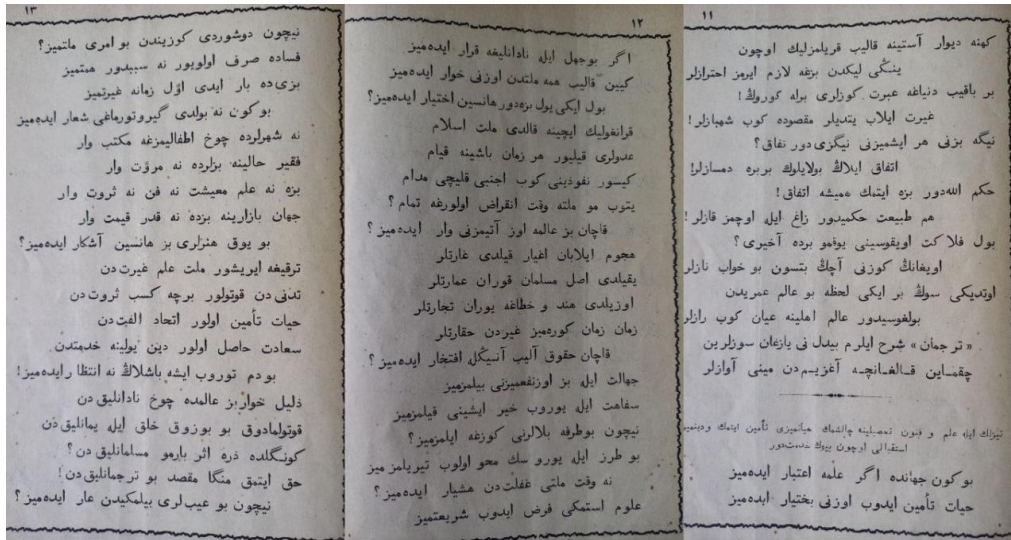 ١١
كهنه ديوار آستينه قاليب قريلمزليك اوچون
ينگى ليكدن بزغه لازم ايرمز احترازلر
بر باقيب دنياغه عبرت كوزلرى برله كوروڭ!
غيرت ايلاب يتديلر مقصوده كوب شهبازلر!
نيگه بزنى هر ايشميزنى نيگزى دور نفاق؟
اتفاق ايلاڭ بولايلوك بربره دمسازلر!
حكم الله دور بزه ايتمك هميشه اتفاق!
هم طبيعت حكميدور زاغ ايله اوچمز قازلر!
بول فلاكت اويقوسينى يوقمو برده آخيرى؟
اويغانڭ كوزنى آچڭ بتسون بو خواب نازلر
اوتديكى سوڭ بر ايكى لحظه بو عالم عمريدن
بولغوسيدور عالم اهلينه عيان كوب رازلر
«ترجمان» شرح ايلرم بيدل نى يازغان سوزلرين
چقماين قالغانچه آغزيمدن مينى آوازلر
تيزلك ايله علم و فنون تحصيلينه چالشمك حياتميزى تأمين ايتمك ودينميز
استقبالى اوچون بيوك خدمت دور
بو كون جهانده اگر علمه اعتبار ايده ميز
حيات تأمين ايدوب اوزنى بختيار ايده ميز
١٢
اگر بوجهل ايله نادانليغه قرار ايده ميز
كيين قاليب همه ملتدن اوزنى خوار ايده ميز
بول ايكى يول بزه دور هانسين اختيار ايده ميز؟
قرانغوليك ايچينه قالدى ملت اسلام
عدولرى قيليور هر زمان باشينه قيام
كيسور نفوذينى كوب اجنبى قليچى مدام
يتوب مو ملته وقت انقراض اولورغه تمام؟
قاچان بز عالمه اوز آتيمزنى وار ايده ميز؟
هجوم ايلابان اغيار قيلدى غارتلر
يقيلدى اصل مسلمان قوران عمارتلر
اوزيلدى هند و خطاغه يوران تجارتلر
زمان زمان كوره ميز غيردن حقارتلر
قاچان حقوق آليب آنسيڭل افتخار ايده ميز؟
جهالت ايله بز اوزنفعميزنى بيلمزميز
سفاهت ايله يوروب خير ايشينى قيلمزميز
نيچون بوطرفه بلالرنى كوزغه ايلمزميز؟
بو طرز ايله يورو سك محو اولوب تيريلمز ميز
نه وقت ملتى غفلت دن هشيار ايده ميز؟
علوم استمكى فرض ايدوب شريعتميز
١٣
نيچون دوشوردى كوزيندن بو امرى ملتميز؟
فساده صرف اولويور نه سببدور همتميز
بزى ده بار ايدى اوّل زمانه غيرتميز
بو كون نه بولدى گيروتورماغى شعار ايده ميز
نه شهرلرده چوخ اطفاليمزغه مكتب وار
فقير حالينه بزلرده نه مروّت وار
بزه نه علم معيشت نه فن نه ثروت وار
جهان بازارينه بزده نه قدر قيمت وار
بو يوق هنرلرى بز هانسين آشكار ايده ميز؟
ترقيغه ايريشور ملت علم غيرت دن
تدنى دن قوتولور برچه كسب ثروت دن
حيات تأمين اولور اتحاد الفت دن
سعادت حاصل اولور دين يولينه خدمتدن
بو دم توروب ايشه باشلاڭ نه انتظار ايده ميز!
ذليل خوار بز عالمده چوخ نادانليق دن
قوتولمادوق بو بوزوق خلق ايله يمانليق دن
كونگلده ذره اثر بارمو مسلمانليق دن؟
حق ايتمق منگا مقصد بو ترجمانليق دن!
نيچون بو عيب لرى بيلمكيدن عار ايده ميز؟